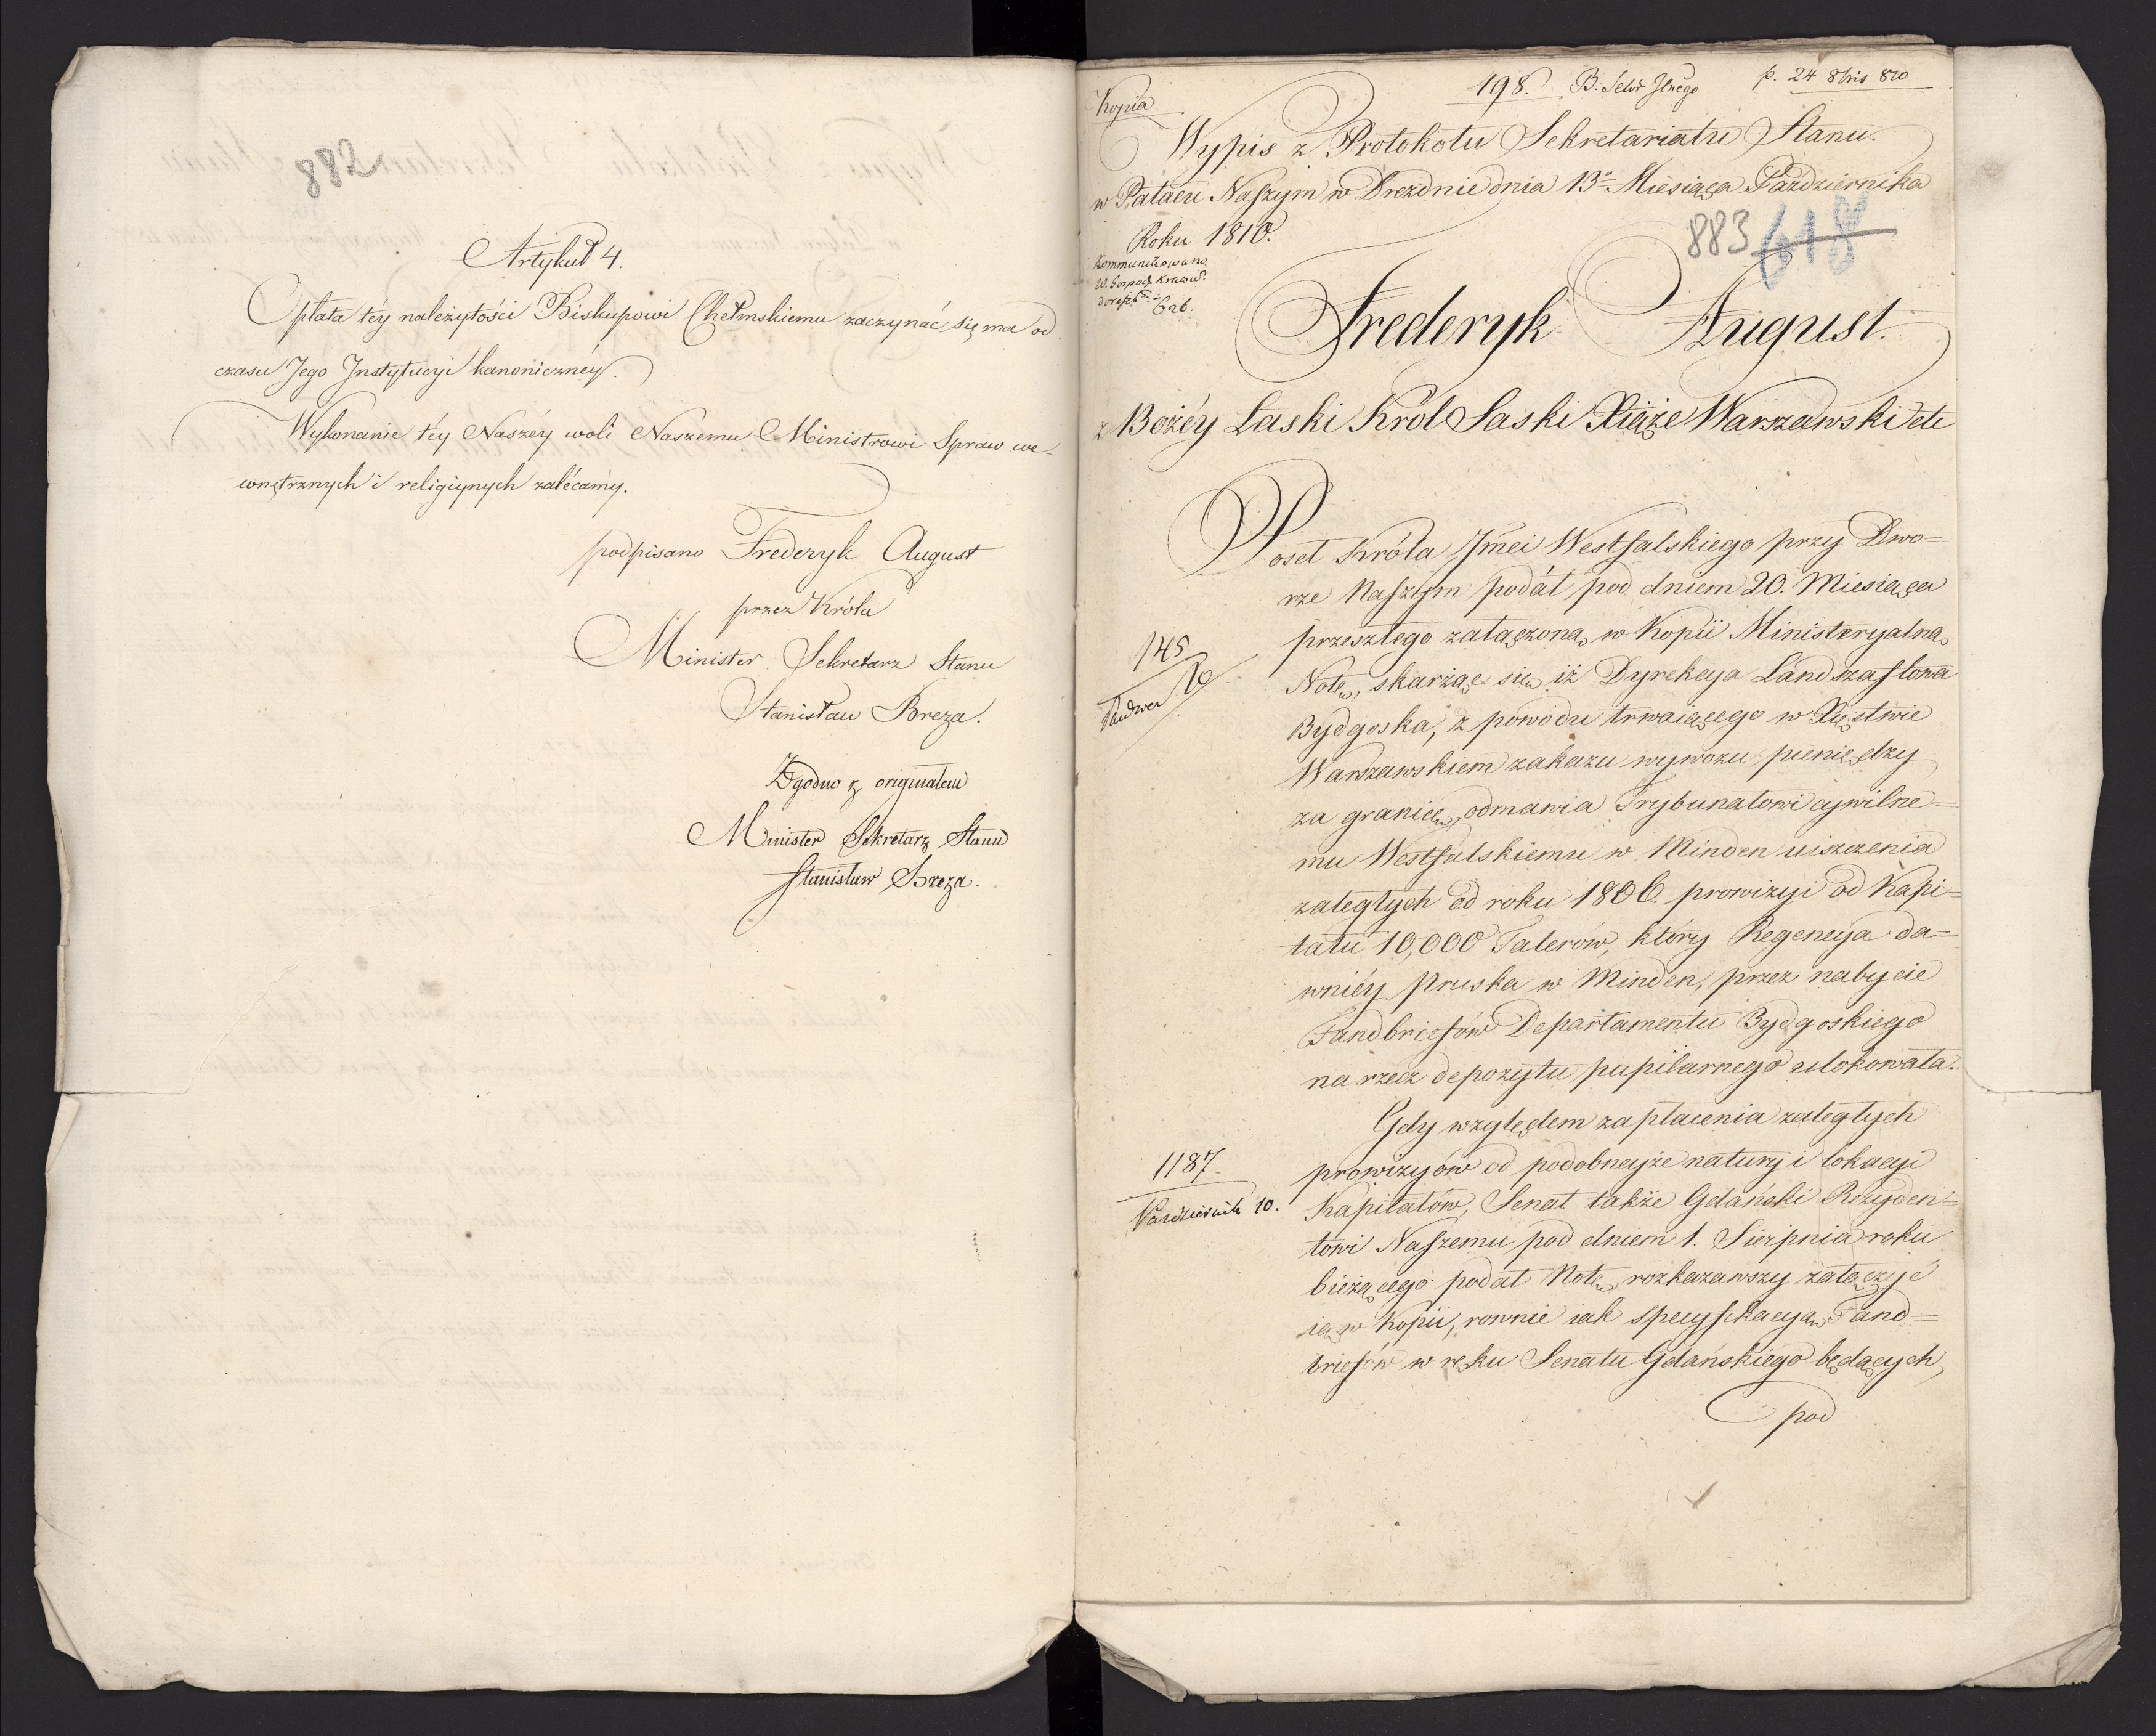 882
Artykuł 4.
Opłata téy należytości Biskupowi Chełmskiemu zaczynać się ma od
czasu Jego Instytucyi kanonicznéy.
Wykonanie téy Naszéy woli Naszemu Ministrowi Spraw we-
wnętrznych i religiynych zalécamy.
podpisano Frederyk August
przez Króla
Minister Sekretarz Stanu
Stanisław Breza.
Zgodno z originałem
Minister Sekretarz Stanu
Stanisław Breza.
Kopia
198. B. p. 24 8bris 810
Wypis z Protokołu Sekretariatu Stanu.
w Pałacu Naszym w Dreźnie dnia 13º Miesiąca Października
Roku 1810.
883 618
Kommunikowano
Frederyk August.
z Bożéy Łaski Król Saski Xiąże Warszawski etc
Poseł Króla Jmci Westfalskiego przy Dwo=
rze Naszym podał pod dniem 20. Miesiąca
przeszłego załączoną w Kopii Ministeryalną
145
Notę, skarżąc się iż Dyrekcya Landszaftowa
Bydgoska, z powodu trwaiącego w Xięstwie
Warszawskiem zakazu wywozu pieniędzy
za granicę, odmawia Trybunałowi cywilne=
mu Westfalskiemu w Minden uiszczenia
zaległych od roku 1806. prowizyi od Kapi=
tału 10,000 Talerów, który Regencya da=
wniéy Pruska w Minden, przez nabycie
Fandbriefów Departamentu Bydgoskiego
na rzecz depozytu pupilarnego ulokowała.
Gdy względem zapłacenia zaległych
1187.
prowizyów od podobneyże natury i lokacyi
Październik 10.
Kapitałów, Senat także Gdański Rezyden=
towi Naszemu pod dniem 1. Sierpnia roku
bieżącego podał Notę, rozkazawszy załączyć
ią w Kopii, rownie iak specyfikacyą Fand=
briefów w ręku Senatu Gdańskiego będących,
pod